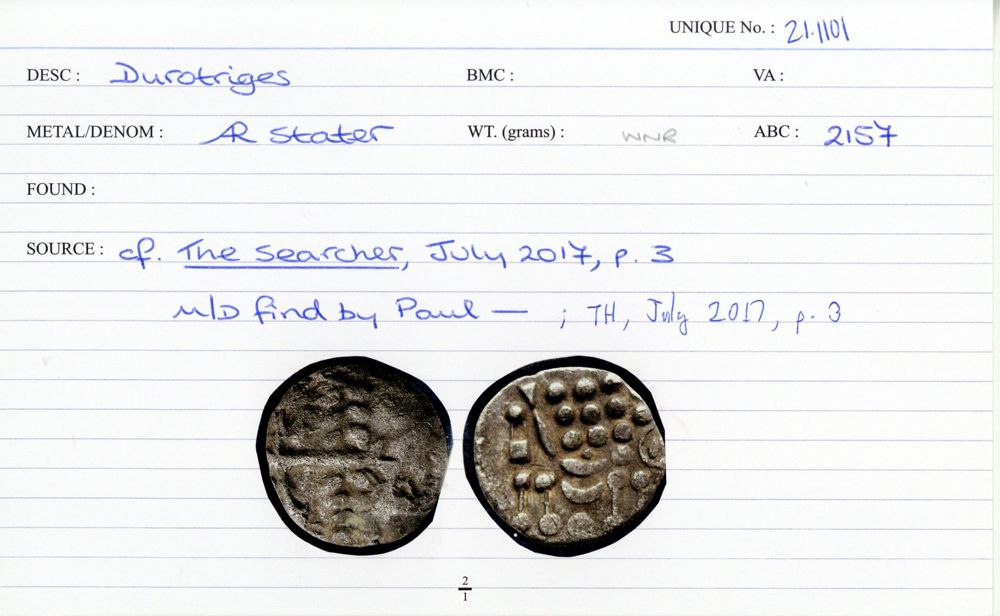 UNIQUE No. : 21.1101
DESC : Durotriges BMC : VA :
METAL/DENOM : AR Stater WT. (grams) : WNR ABC : 2157
FOUND :
SOURCE : cf. The Searcher, July 2017, p. 3
M/D find by Paul — ; TH, July 2017, p. 3
2
1